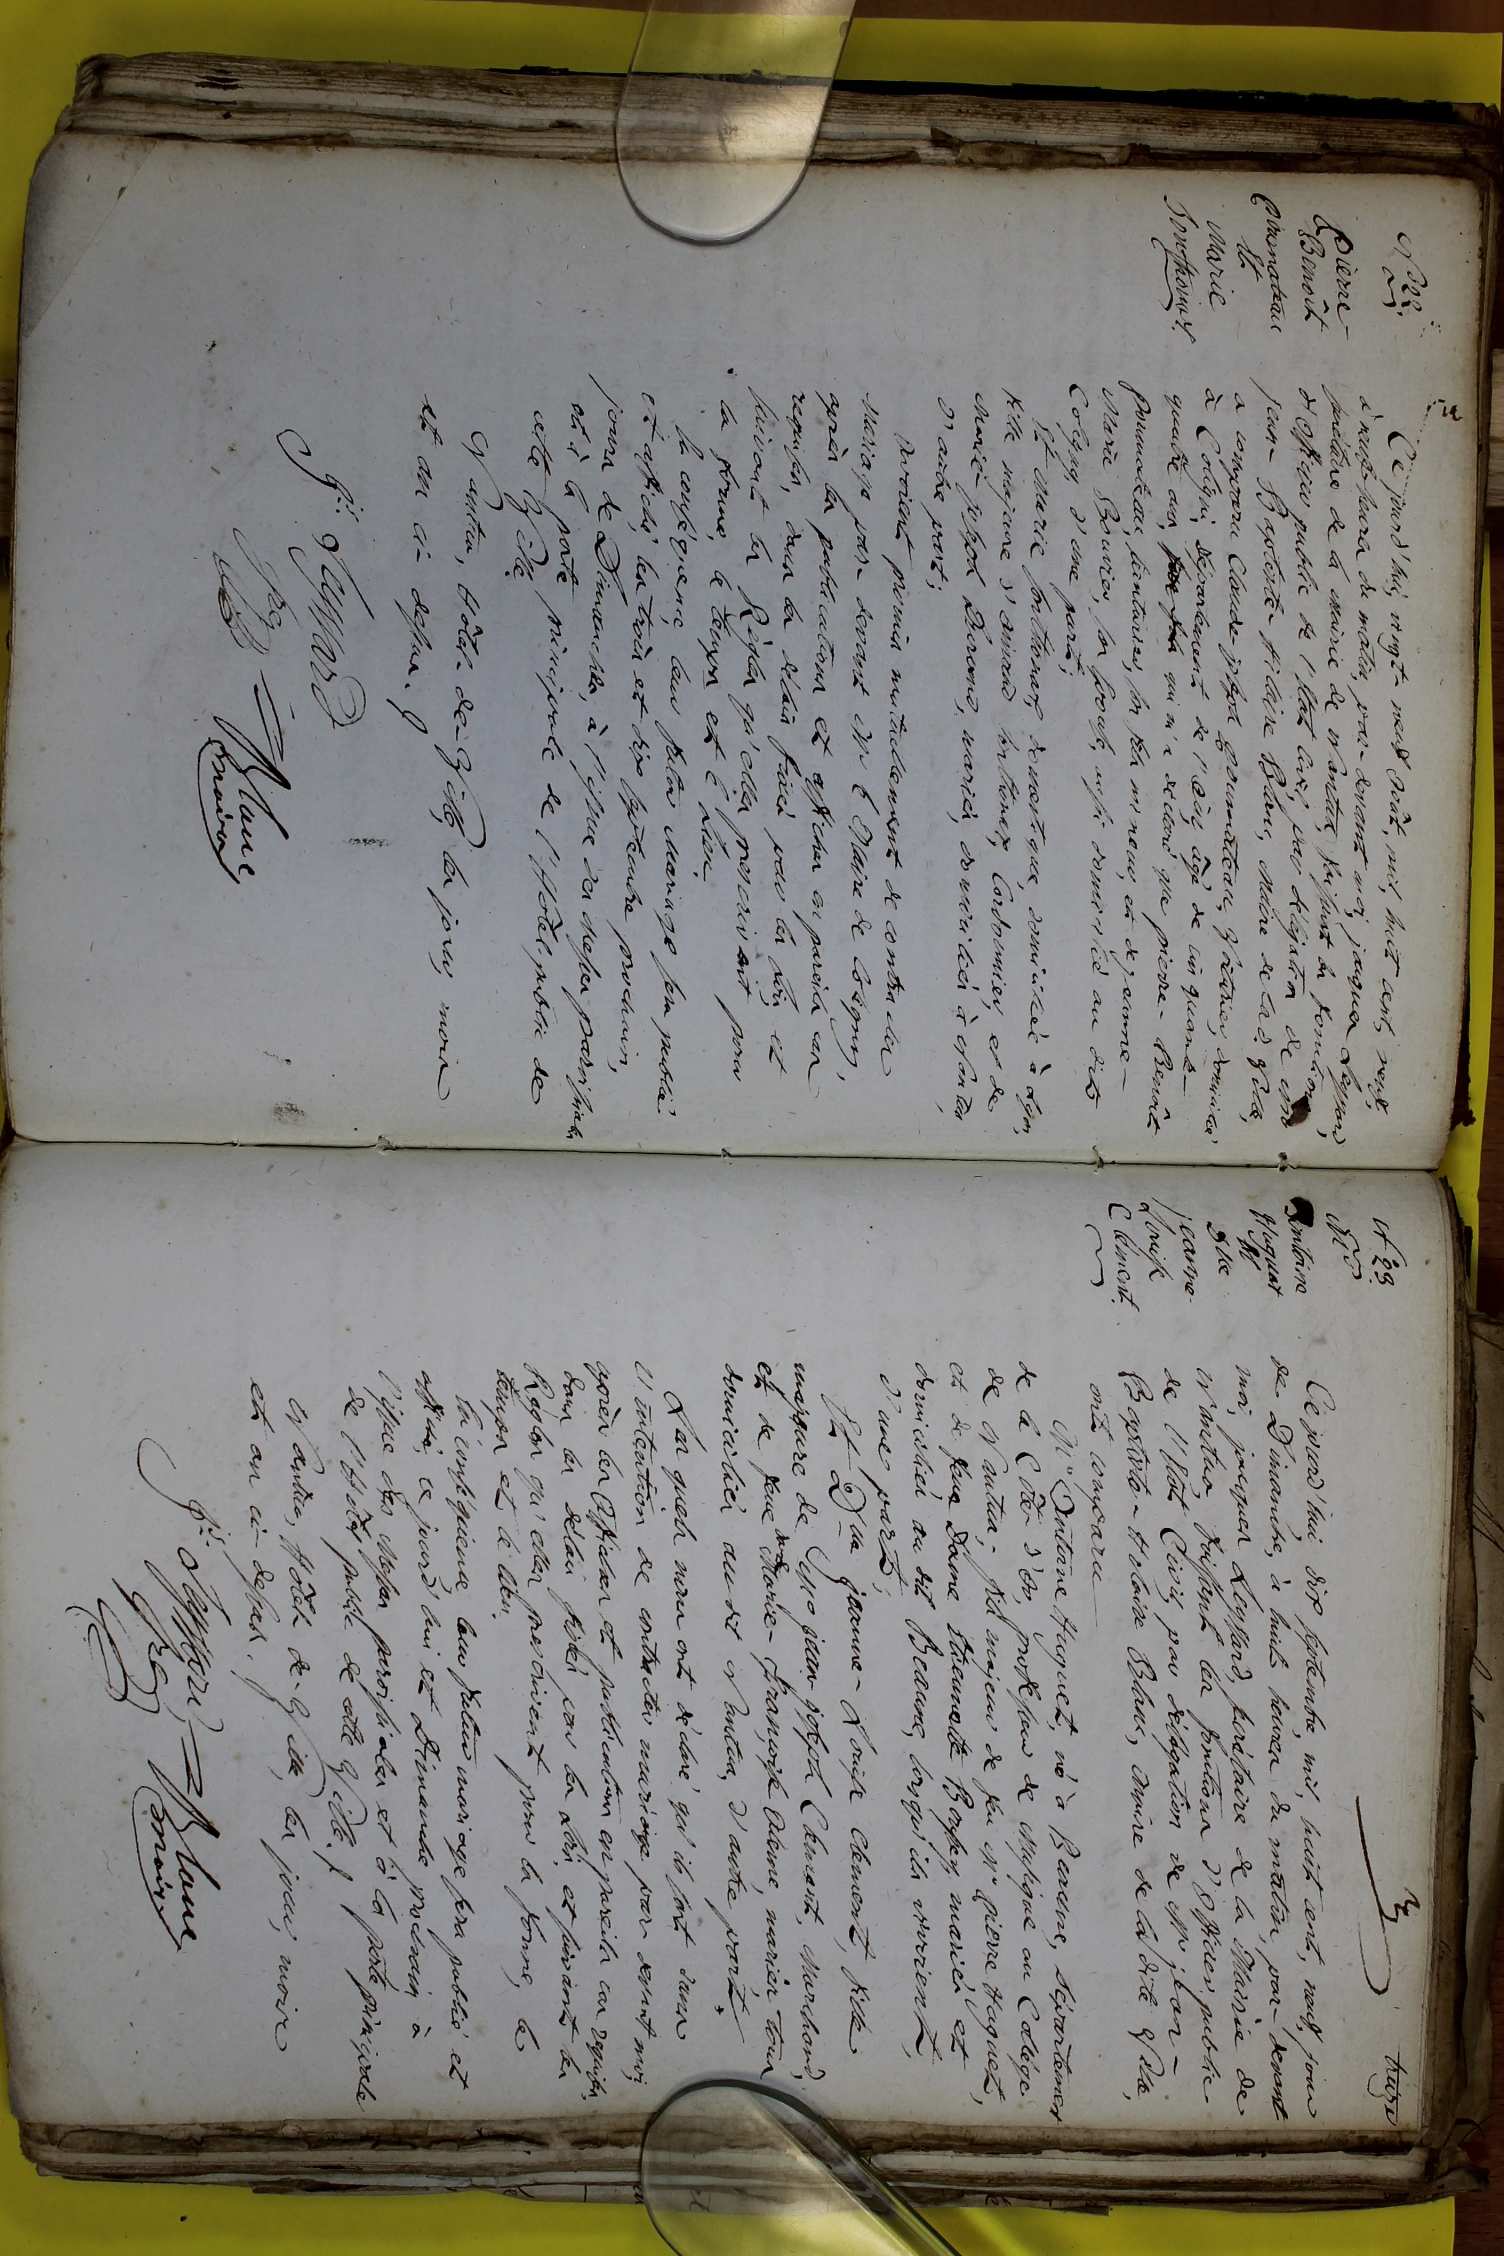 N.° 22.
Pierre
Benoît
Et
Marie
Ce jourd'hui, vingt neuf Août, mil, huit cent, neuf,
à heures du matin, par-devant moi, jaques Leyssard,
secrétaire de la Mairie de Nantua, faisant les fonctions
d'officier public de l'État civil, par délégation de
jean-Baptiste-hilaire Blanc, Maire de lad. Ville,
a comparu Claude-joseph domicilié
à Coligni, département de l'ain, âgé de cinquante-
quatre ans, qui m'a déclaré que pierre-Benoît
son fils mineur, et de jeanne-
Marie Bouvier, son épouse, aussi domicilié au dit
Coligny, d'une part;
Et Marie domestique, domiciliée à Lyon,
fille majeure d' Cordonnier, et de
Marie-joseph mariés, domiciliés à Nantua
d'autre part;
Avoient promis mutuellement de contracter
Mariage par-devant M. le Maire de Coligny,
après les publications et affiches en pareil cas
requises, dans les délais fixés par les lois, et
suivant les Règles qu'elles prescrivent pour
la forme, le temps et le lieu.
En conséquence, leur futur Mariage sera publié
et affiché, les trois et dix Septembre prochain,
jours de Dimanche, à l'issue des Messes paroissiales
et à la porte principale de l'Hôtel public de
cette Ville.
Nantua, Hôtel-de-Ville, les jour, mois
et an ci-dessus.
Js. Leyssard
Sre
Blanc
maire
N.° 23.
Mr.
Antoine
Huguet
Et
Dlle
jeanne-
Louise
Clément.
treize
Ce jourd'hui dix septembre, mil, huit cent, neuf, jour
de Dimanche, à huit heures du matin, par-devant
moi, jacques Leyssard, secrétaire de la Mairie de
Nantua, faisant les fonctions d'Officier public
de l'État Civil, par délégation de Mr. jean-
Baptiste-Hilaire Blanc, Maire de la dite Ville,
ont comparu
Mr. Antoine Huguet, né à Beaune, département
de la Côte d'Or, professeur de Musique au Collège
de Nantua, fils majeur de feu Mr. pierre Huguet,
et de feue Dame Etiennette mariés et
domiciliés au dit Beaune, lorsqu'ils vivoient,
d'une part;
Et Dlle jeanne-Louise Clément, fille
majeure de Sieur jean-joseph Clément, Marchand,
et de feue dame Marie-françoise mariés tous
domiciliés au dit Nantua, d'autre part.
Les quels nous ont déclaré qu'ils sont dans
l'intention de contracter mariage par-devant moi,
après les Affiches et publications en pareils cas requises,
dans les délais fixés par les Lois, et suivant les
Règles qu'elles prescrivent pour la forme, le
temps et le lieu.
En conséquence, leur futur mariage sera publié et
affiché, ce jourd'hui et Dimanche prochain à
l'issue des Messes paroissiales et à la porte principale
de l'Hôtel public de cette Ville.
Nantua, Hôtel-de-Ville, les jour, mois
et an ci-dessus.
Js. Leyssard,
Sre
Blanc
maire